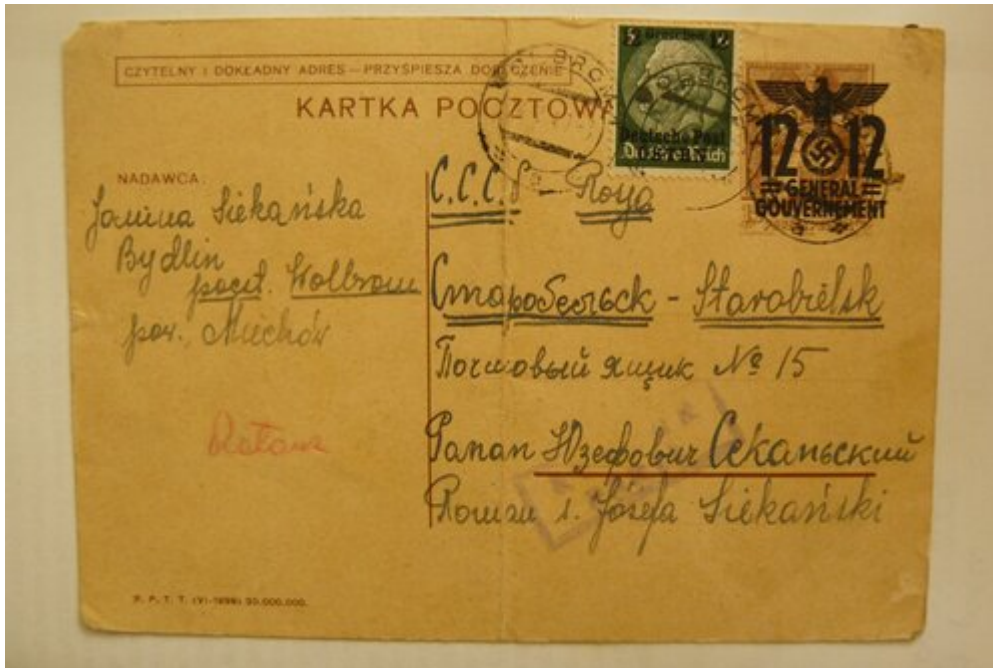 CZYTELNY I DOKŁADNY ADRES — PRZYŚPIESZA DORĘCZENIE
KARTKA POCZTOWA
Deutsche Post
Deutsches Reich
12 12
GENERAL
GOUVERNEMENT
NADAWCA:
Janina Siekańska
Bydlin
poczt. Wolbrom
pow. Miechów
С.С.С.Р. Rosja
Старобельск - Starobielsk
Почтовый ящик № 15
Роман Юзефович Секаньский
Roman s. Józefa Siekański
Retour
P. P. T. T. (VI-1939) 30.000.000.